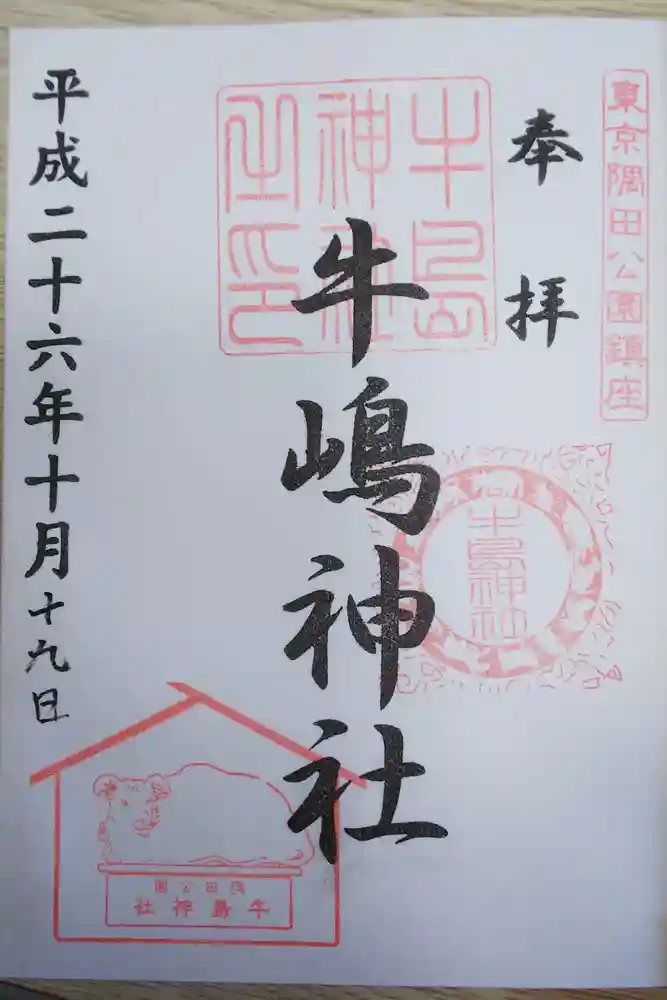 東京隅田公園鎮座
奉拝
牛島
神社
之印
牛嶋神社
牛島
神社
隅田公園
牛島神社
平成二十六年十月十九日